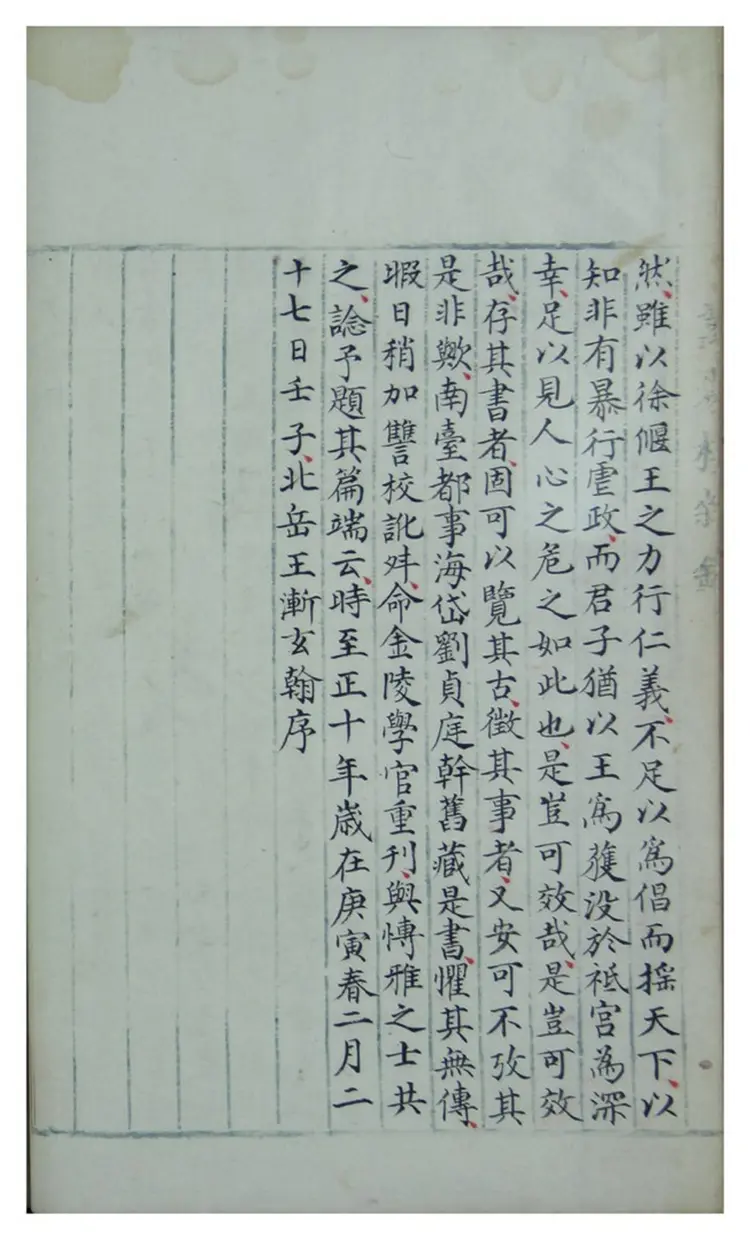 然、雖以徐偃王之力行仁義、不足以為倡而揺天下、以
知非有暴行虐政、而君子猶以王為獲没於祗宮為深
幸、足以見人心之危之如此也、是豈可效哉、是豈可效
哉、存其書者、固可以覽其古、徴其事者、又安可不攷其
是非歟、南臺都事海岱劉貞庭幹舊藏是書、懼其無傳、
暇日稍加讐校訛舛、命金陵學官重刊、與愽雅之士共
之、諗予題其篇端云、時至正十年歳在庚寅春二月二
十七日壬子、北岳王漸玄翰序